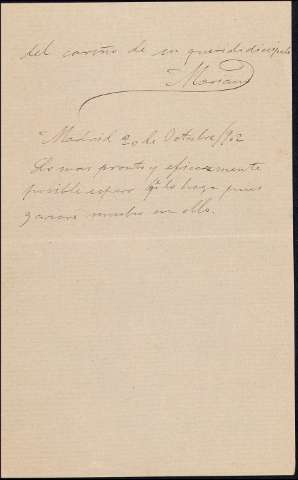 del cariño de su querido discipulo
Mariano
Madrid 20 de Octubre/902
Lo mas pronto y eficazmente
posible espero q.e lo haga pues
ganará mucho en ello.